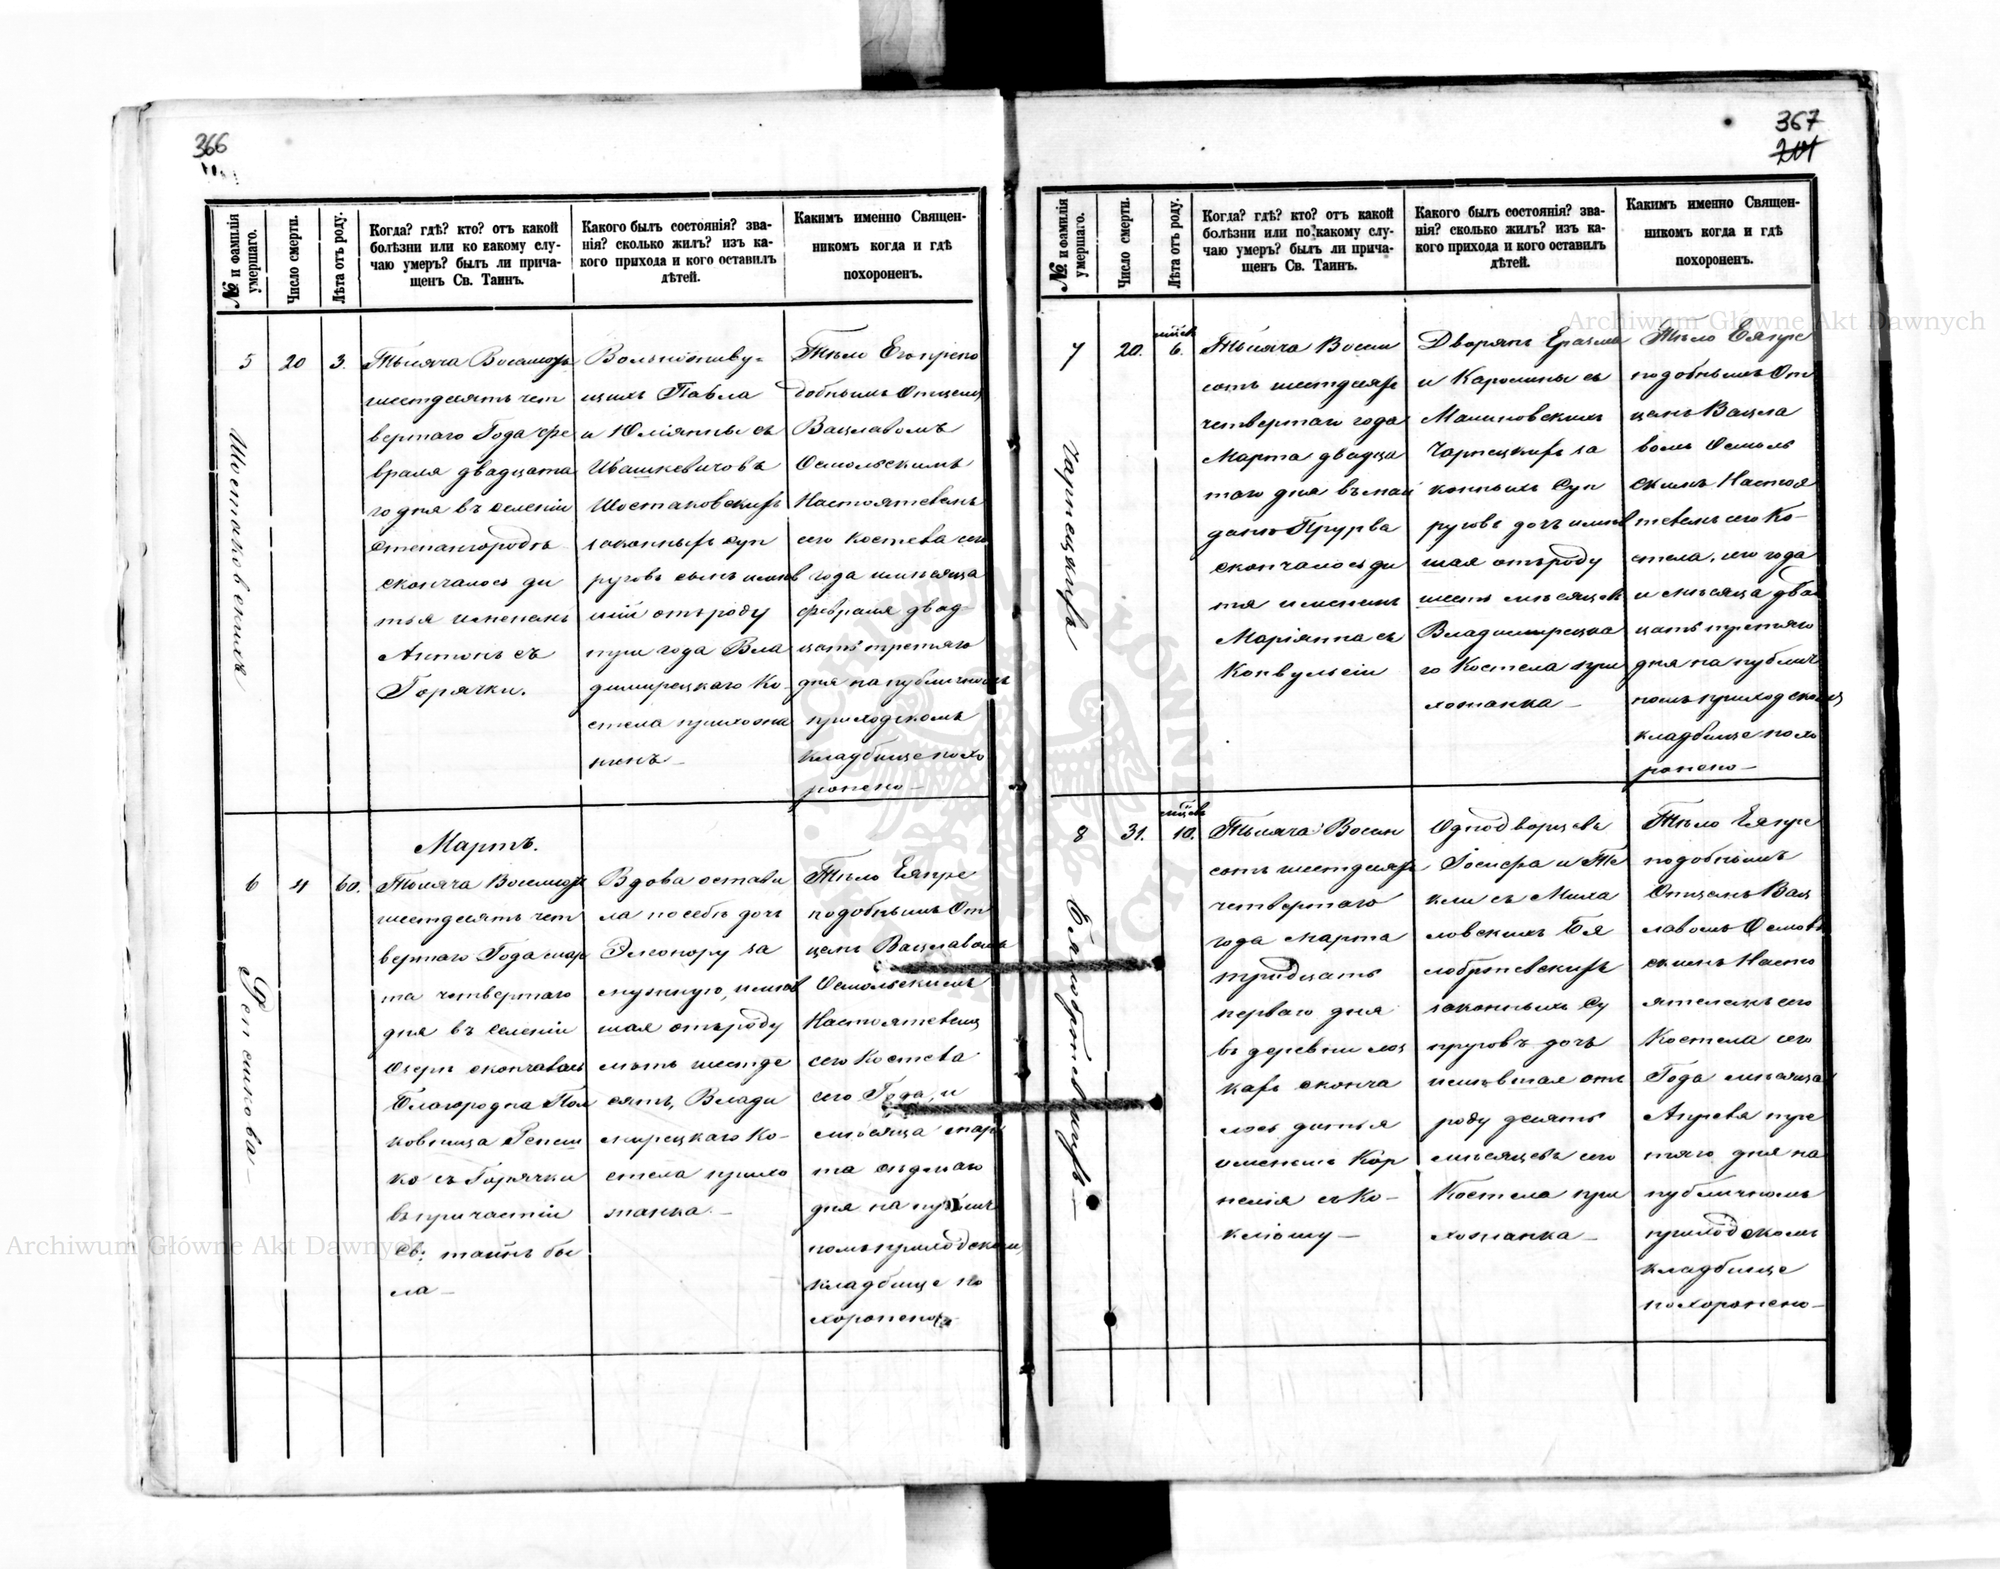 366
№ и фамилія умершаго.
Число смерти.
Лѣта отъ роду.
Когда? гдѣ? кто? отъ какой
болѣзни или ко какому слу-
чаю умеръ? былъ ли прича-
щенъ Св. Таинъ.
Какого былъ состоянія? зва-
нія? сколько жилъ? изъ ка-
кого прихода и кого оставилъ
дѣтей.
Какимъ именно Священ-
никомъ когда и гдѣ
похороненъ.
5
Шостаковскихъ
20
3.
Тысяча Восемсотъ
шестдесятъ чет
вертаго Года фе
враля двадцата
го дня въ селеніи
Степангородѣ
скончалось ди
тья именемъ
Антонъ съ
Горячки.
Вольноживу=
щихъ Павла
и Юліянны съ
Ивашкевичовъ
Шостаковскихъ
законныхъ суп
руговъ сынъ имѣв
шій отъ роду
три года Вла
димирецкаго Ко-
стела прихожа
нинъ –
Тѣло Его препо
добнымъ Отцемъ
Вацлавомъ
Осмольскимъ
Настоятелемъ
сего Костела сего
года и мѣсяца
февраля двад-
цать третяго
дня на публичномъ
приходскомъ
кладбище похо
ронено –
Мартъ.
6
4
60.
Тысяча Восемсотъ
шестдесятъ чет
вертаго Года мар
та четвертаго
дня въ селеніи
Озеры скончалась
Благородна
ковница
ко съ Горячки
въ причастіи
Св: таинъ бы
ла –
Вдова остави
ла по себѣ дочь
Элеонору за
мужную, имѣв
шая отъ роду
лѣтъ шестде
сятъ, Влади
мирецкаго Ко-
стела прихо
жанка. –
Тѣло Ея пре
подобнымъ От
цемъ Вацлавомъ
Осмольскимъ
Настоятелемъ
сего Костела
сего Года, и
мѣсяца мар
та седмаго
дня на публич
номъ приходскомъ
кладбище по
хоронено –
367
201
№ и фамилія умершаго.
Число смерти.
Лѣта отъ роду.
Когда? гдѣ? кто? отъ какой
болѣзни или по какому слу-
чаю умеръ? былъ ли прича-
щенъ Св. Таинъ.
Какого былъ состоянія? зва-
нія? сколько жилъ? изъ ка-
кого прихода и кого оставилъ
дѣтей.
Какимъ именно Священ-
никомъ когда и гдѣ
похороненъ.
7
Чарнецкихъ
20.
6.
Тысяча Восем
сотъ шестдесятъ
четвертаго года
Марта двадца
таго дня въ маи
данѣ Прурва
скончалось ди
тя именемъ
Маріянна съ
Конвульсіи
Дворянъ Еразма
и Каролины съ
Малиновскихъ
Чарнецкихъ за
конныхъ Суп
руговъ дочь имѣв
шая отъ роду
шесть мѣсяцевъ
Владимирецка
го Костела при
хожанка –
Тѣло Ея пре
подобнымъ От
цемъ Вацла
вомъ Осмоль
скимъ Настоя
телемъ сего Ко-
стела, сего года
и мѣсяца двад
цать третяго
дня на публич
номъ приходскомъ
кладбище похо
ронено –
8
31.
10.
Тысяча Восем
сотъ шестдесятъ
четвертаго
года Марта
тридцать
перваго дня
въ деревни
сконча
лось дитья
именемъ Кор
нелія съ Ко-
клюшу –
Однодворцевъ
Іосифа и Те
кли съ Миха
ловскихъ Бя
законныхъ Су
пруговъ дочь
имѣвшая отъ
роду десять
мѣсяцевъ сего
Костела при
хожанка –
Тѣло Ея пре
подобнымъ
Отцемъ Вац
лавомъ Осмоль
скимъ Насто
ятелемъ сего
Костела сего
Года мѣсяца
Апреля тре
тяго дня на
публичномъ
приходскомъ
кладбище
похоронено –
Archiwum Główne Akt Dawnych
Archiwum Główne Akt Dawnych